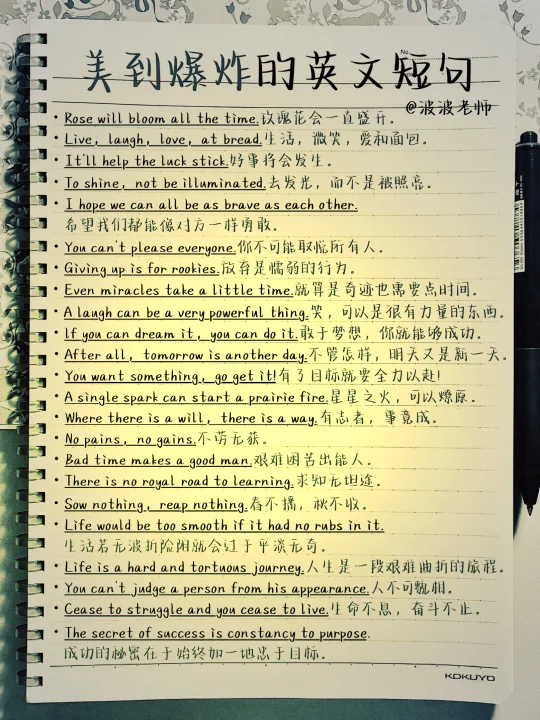 美到爆炸的英文短句
No.
@波波老师
• Rose will bloom all the time.玫瑰花会一直盛开。
• Live, laugh, love, at bread.生活，微笑，爱和面包。
• It'll help the luck stick.好事将会发生。
• To shine, not be illuminated.去发光，而不是被照亮。
• I hope we can all be as brave as each other.
希望我们都能像对方一样勇敢。
• You can't please everyone.你不可能取悦所有人。
• Giving up is for rookies.放弃是懦弱的行为。
• Even miracles take a little time.就算是奇迹也需要点时间。
• A laugh can be a very powerful thing.笑，可以是很有力量的东西。
• If you can dream it, you can do it.敢于梦想，你就能够成功。
• After all, tomorrow is another day.不管怎样，明天又是新一天。
• You want something, go get it!有了目标就要全力以赴!
• A single spark can start a prairie fire.星星之火，可以燎原。
• Where there is a will, there is a way.有志者，事竟成。
• No pains, no gains.不劳无获。
• Bad time makes a good man.艰难困苦出能人。
• There is no royal road to learning.求知无坦途。
• Sow nothing, reap nothing.春不播，秋不收。
• Life would be too smooth if it had no rubs in it.
生活若无波折险阻就会过于平淡无奇。
• Life is a hard and tortuous journey.人生是一段艰难曲折的旅程。
• You can't judge a person from his appearance.人不可貌相。
• Cease to struggle and you cease to live.生命不息，奋斗不止。
• The secret of success is constancy to purpose.
成功的秘密在于始终如一地忠于目标。
KOKUYO